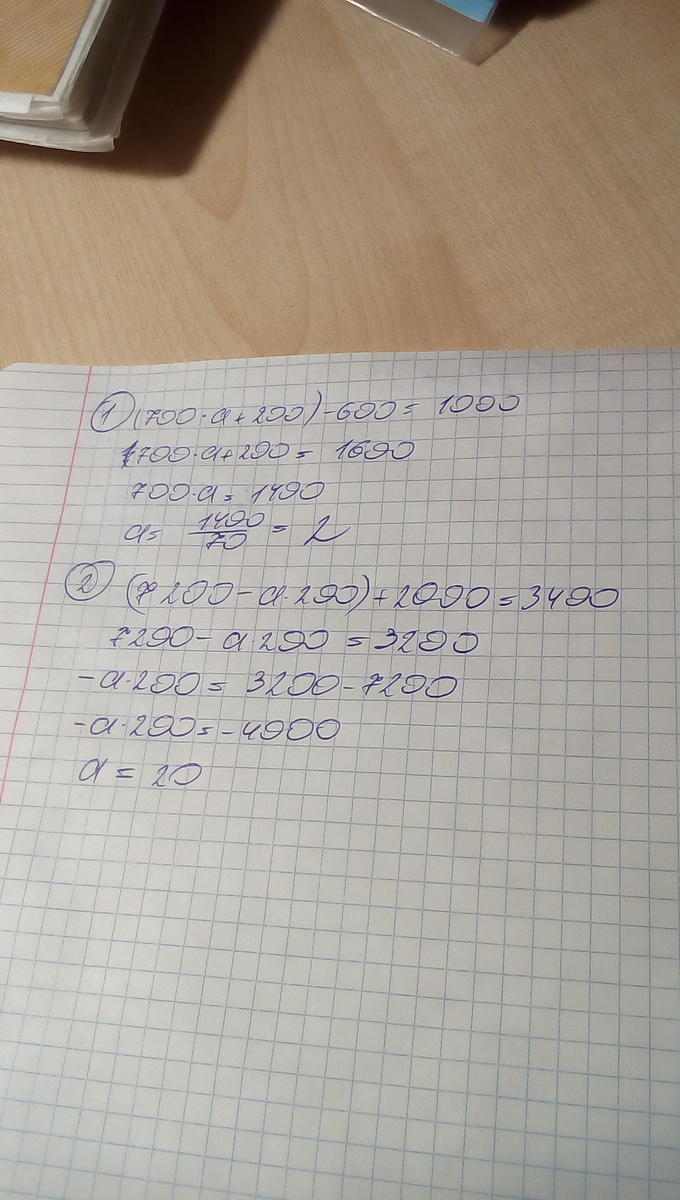 ① (700·a+200)-600=1000
700·a+200=1600
700·a=1400
a=1400/70=2
② (7200-a·200)+2000=3400
7200-a·200=3200
-a·200=3200-7200
-a·200=-4000
a=20